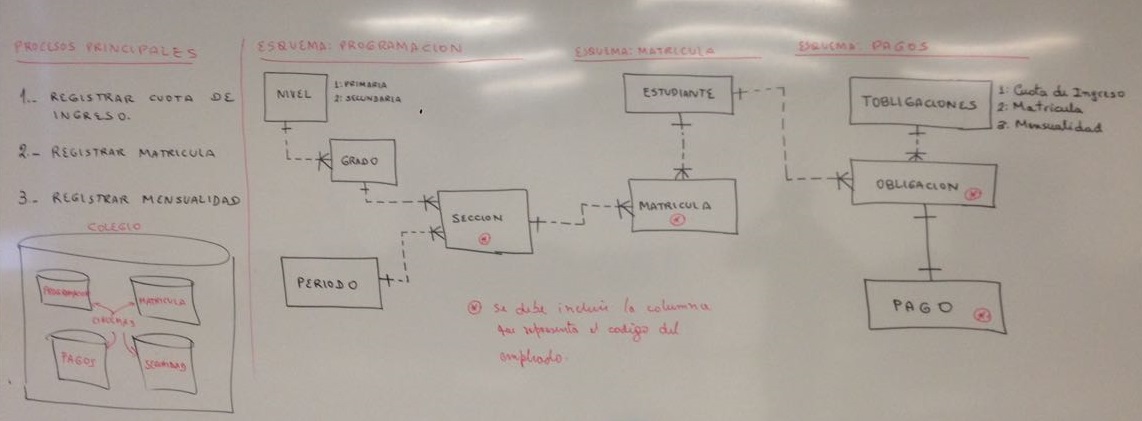 PROCESOS PRINCIPALES
1.- REGISTRAR CUOTA DE
INGRESO.
2.- REGISTRAR MATRICULA
3.- REGISTRAR MENSUALIDAD
COLEGIO
MATRICULA
PAGOS
ESQUEMA: PROGRAMACION
NIVEL
1: PRIMARIA
2: SECUNDARIA
GRADO
SECCION
PERIODO
ESQUEMA: MATRICULA
ESTUDIANTE
MATRICULA
ESQUEMA: PAGOS
TOBLIGACIONES
1: Cuota de Ingreso
2: Matricula
3. Mensualidad
OBLIGACION
PAGO
se debe incluir la columna
que representa el codigo del
empleado.